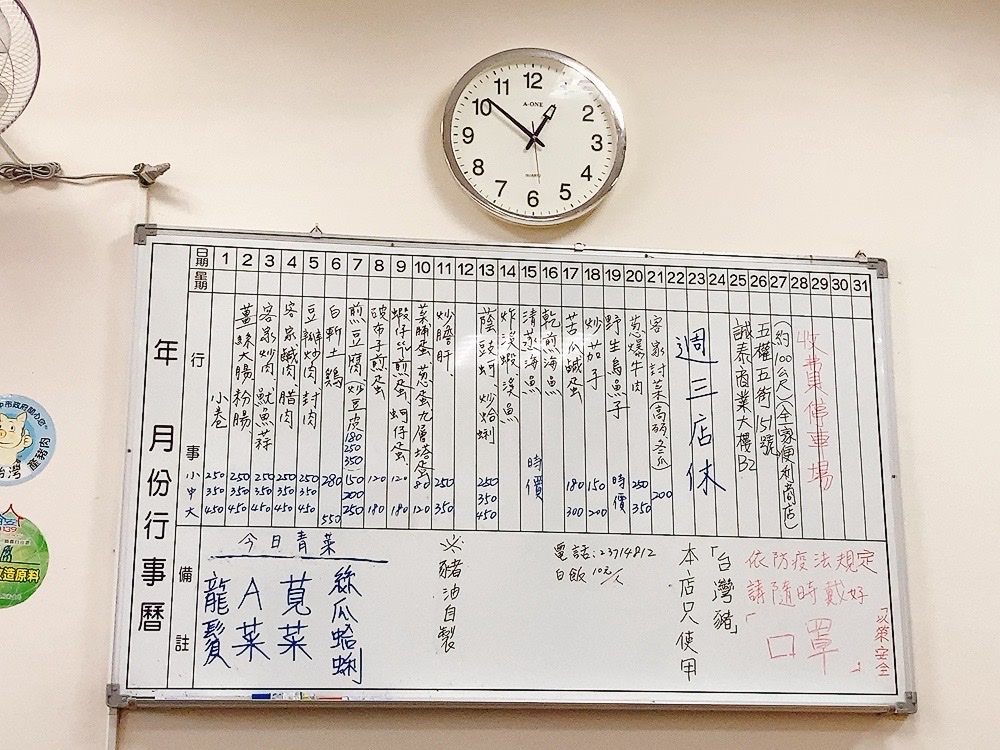 11 12
10 2
9 3
8 4
7 6 5
A-ONE
QUARTZ
年 月份行事曆
日期 1 2 3 4 5 6 7 8 9 10 11 12 13 14 15 16 17 18 19 20 21 22 23 24 25 26 27 28 29 30 31
星期
行事
小中大
小卷 250 350 450
薑絲大腸、粉腸 250 350 450
客家炒肉、魷魚蒜 250 350 450
客家鹹肉、腊肉 250 350 450
豆瓣炒肉、封肉 250 350 450
白斬土鷄 280 550
煎豆腐(炒豆皮 180 250 350) 150 200 250
破布子煎蛋 120 180
蝦仔煎蛋、蚵仔蛋 120 180
菜脯蛋、蔥蛋、九層塔蛋 80 120
炒膽肝 250 350
蔭豉蚵、炒蛤蜊 250 350 450
炸溪蝦、溪魚
清蒸海魚 時價
乾煎海魚
苦瓜鹹蛋 180 300
炒茄子 150 200
野生烏魚子 時價
蔥爆牛肉 250 350
客家封菜(高麗、冬瓜) 200
週三店休
誠泰商業大樓B2
五權五街151號
(約100公尺)(全家便利商店)
收費停車場
備註
今日青菜
龍鬚
A菜
莧菜
絲瓜蛤蜊
※豬油自製
電話:23714812
白飯10元/人
本店只使用
「台灣豬」
依防疫法規定
請隨時戴好
「口罩」
「以策安全
台灣
豬肉